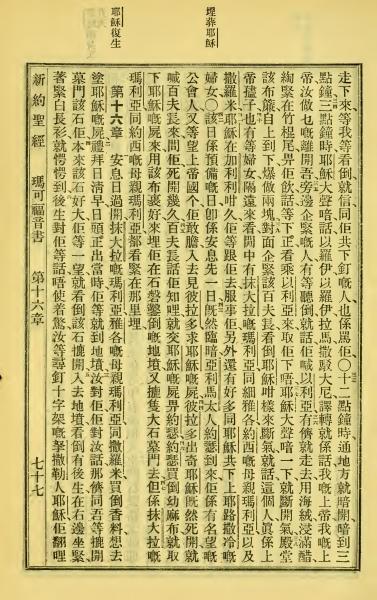 埋葬耶穌
耶穌復生
走下來等我等看倒就信同佢共下釘嘅人也係罵佢〇十二點鐘時通地方就暗開暗到三
點鐘三點鐘時耶穌大聲喑話以羅伊以羅伊拉馬撒駁大尼譯轉就係話我嘅上帝我嘅上
帝汝做乜嘅離開吾旁邊企緊嘅人有等聽倒就話佢喊以利亞有儕就走去用海絨浸滿醋
綯緊在竹棍尾畀佢飲話等下正看乘以利亞來取佢下唔耶穌大聲喑一下就斷開氣殿堂
該布簾自上到下爆做兩塊對面企緊該百夫長看倒耶穌咁樣來斷氣就話這個人眞係上
帝孻子也有等婦女隔遠來看開中有抹大拉嘅瑪利亞同細雅各約西嘅母親瑪利亞以及
撒羅米耶穌在加利利咁久佢等跟佢去服事佢另外還有好多同耶穌共下上耶路撒冷嘅
婦女〇該日係預備嘅日卽係安息先一日旣然臨暗亞利馬太人約瑟到來佢係有名望嘅
公會人又等望上帝國个佢敢膽入去見彼拉多求耶穌嘅屍彼拉多出奇耶穌旣然死開就
喊百夫長來問佢死開幾久百夫長話佢知哩就交耶穌嘅屍畀約瑟約瑟買倒幼麻布就取
下耶穌嘅屍來用該布裹好來埋佢在石礐鑿倒嘅地墳又㩯隻大石墓門去但係抹大拉嘅
瑪利亞同約西嘅母親瑪利亞都看緊在那里埋
第十六章 安息日過開抹大拉嘅瑪利亞雅各嘅母親瑪利亞同撒羅米買倒香料想去
塗耶穌嘅屍禮拜日淸早日頭正出當時佢等就到地墳汝對佢佢對汝話那儕同吾等㩯開
墓門該石佢本來該石好大佢等一望就看倒該石㩯開入去地墳看倒有後生在右邊坐緊
著緊白長衫就愕愕到後生對佢等話唔使着驚汝等尋釘十字架嘅拿撒勒人耶穌佢翻哩
新約聖經 瑪可福音書 第十六章 七十七